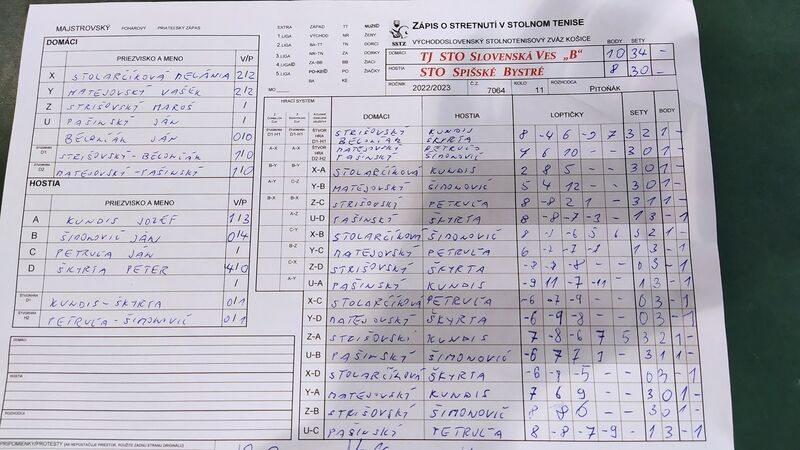 MAJSTROVSKÝ POHÁROVÝ PRIATEĽSKÝ ZÁPAS
DOMÁCI
PRIEZVISKO A MENO V/P
X STOLARČÍKOVÁ MELÁNIA 2/2
Y MATEJOVSKÝ VAŠEK 2/2
Z STRIŠOVSKÝ MAROŠ /
U PAŠINSKÝ JÁN /
BELONIÁK JÁN 0/0
D1 STRIŠOVSKÝ-BELONIÁK 1/0
D2 MATEJOVSKÝ-PAŠINSKÝ 1/0
HOSTIA
PRIEZVISKO A MENO V/P
A KUNDIS JOZEF 1/3
B ŠIMONOVIČ JÁN 0/4
C PETRUĽA JÁN /
D ŠKYRTA PETER 4/0
/
KUNDIS-ŠKYRTA 0/1
PETRUĽA-ŠIMONOVIČ 0/1
DOMÁCI
HOSTIA
ROZHODCA
PRIPOMIENKY/PROTESTY
EXTRA ZÁPAD TT MUŽI
1.LIGA VÝCHOD NR ŽENY
2.LIGA BA-TT TN DORCI
3.LIGA ZA-TN DORKY
4.LIGA ZA-BB BB ŽIACI
5.LIGA PO-KE KE ŽIAČKY
MO
SSTZ
ZÁPIS O STRETNUTÍ V STOLNOM TENISE
VÝCHODOSLOVENSKÝ STOLNOTENISOVÝ ZVÄZ KOŠICE
BODY SETY
DOMÁCI TJ STO SLOVENSKÁ VES „B" 10 34 -
HOSTIA STO SPIŠSKÉ BYSTRÉ 8 30 -
ROČNÍK 2022/2023 Č.Z. 7064 KOLO 11 ROZHODCA PITOŇÁK
HRACÍ SYSTÉM DOMÁCI HOSTIA LOPTIČKY SETY BODY
ŠTVOR HRA D1-H1 STRIŠOVSKÝ BELONIÁK KUNDIS ŠKYRTA 8 -4 6 -9 7 3 2 1 -
ŠTVOR HRA D2-H2 MATEJOVSKÝ PAŠINSKÝ PETRUĽA ŠIMONOVIČ 7 6 10 - - 3 0 1 -
X-A STOLARČÍKOVÁ KUNDIS 2 8 5 - - 3 0 1 -
Y-B MATEJOVSKÝ ŠIMONOVIČ 5 4 12 - - 3 0 1 -
Z-C STRIŠOVSKÝ PETRUĽA 8 -8 2 1 - 3 1 1 -
U-D PAŠINSKÝ ŠKYRTA 8 -8 -7 -3 - 1 3 - 1
X-B STOLARČÍKOVÁ ŠIMONOVIČ 8 -6 5 6 3 2 1 -
Y-C MATEJOVSKÝ PETRUĽA 6 -7 -3 - 1 3 - 1
Z-D STRIŠOVSKÝ ŠKYRTA -8 -8 - - 0 3 - 1
U-A PAŠINSKÝ KUNDIS -9 11 -7 -11 - 1 3 - 1
X-C STOLARČÍKOVÁ PETRUĽA -6 -7 -9 - - 0 3 - 1
Y-D MATEJOVSKÝ ŠKYRTA -6 -9 -8 - - 0 3 - 1
Z-A STRIŠOVSKÝ KUNDIS 7 -8 -6 7 5 3 2 1 -
U-B PAŠINSKÝ ŠIMONOVIČ -6 7 7 1 - 3 1 1 -
X-D STOLARČÍKOVÁ ŠKYRTA -6 -8 -5 - - 0 3 - 1
Y-A MATEJOVSKÝ KUNDIS 7 6 9 - - 3 0 1 -
Z-B STRIŠOVSKÝ ŠIMONOVIČ 8 8 6 - - 3 0 1 -
U-C PAŠINSKÝ PETRUĽA 8 -8 -7 -9 - 1 3 - 1